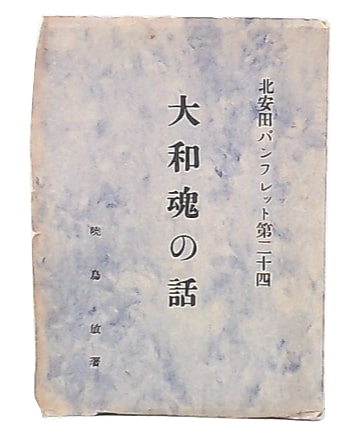 北安田パンフレット第二十四
大和魂の話
暁烏敏著